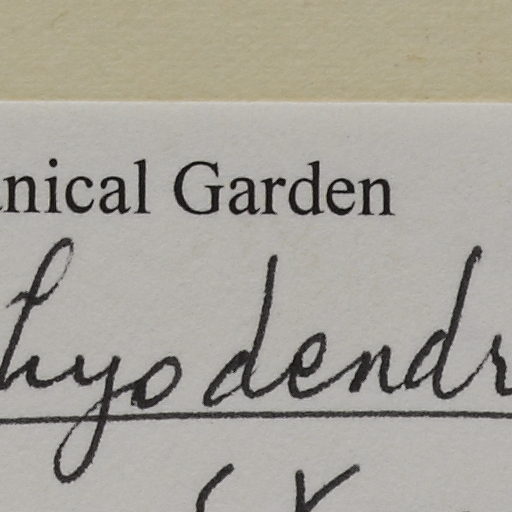 nical Garden
hyodendr